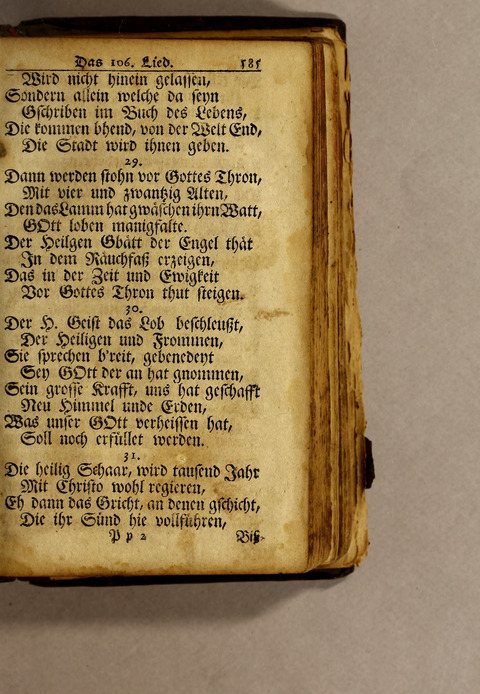 Das 106. Lied. 585
Wird nicht hinein gelassen,
Sondern allein welche da seyn
Gschriben im Buch des Lebens,
Die kommen bhend, von der Welt End,
Die Stadt wird ihnen geben.
29.
Dann werden stohn vor Gottes Thron,
Mit vier und zwantzig Alten,
Den das Lamm hat gwäschen ihrn Watt,
GOtt loben manigfalte.
Der Heilgen Gbätt der Engel thät
In dem Räuchfaß erzeigen,
Das in der Zeit und Ewigkeit
Vor Gottes Thron thut steigen.
30.
Der H. Geist das Lob beschleußt,
Der Heiligen und Frommen,
Sie sprechen b'reit, gebenedeyt
Sey GOtt der an hat gnommen,
Sein grosse Krafft, uns hat geschafft
Neu Himmel unde Erden,
Was unser GOtt verheissen hat,
Soll noch erfüllet werden.
31.
Die heilig Schaar, wird tausend Jahr
Mit Christo wohl regieren,
Eh dann das Gricht, an denen gschicht,
Die ihr Sünd hie vollführen,
P p 2 Biß-